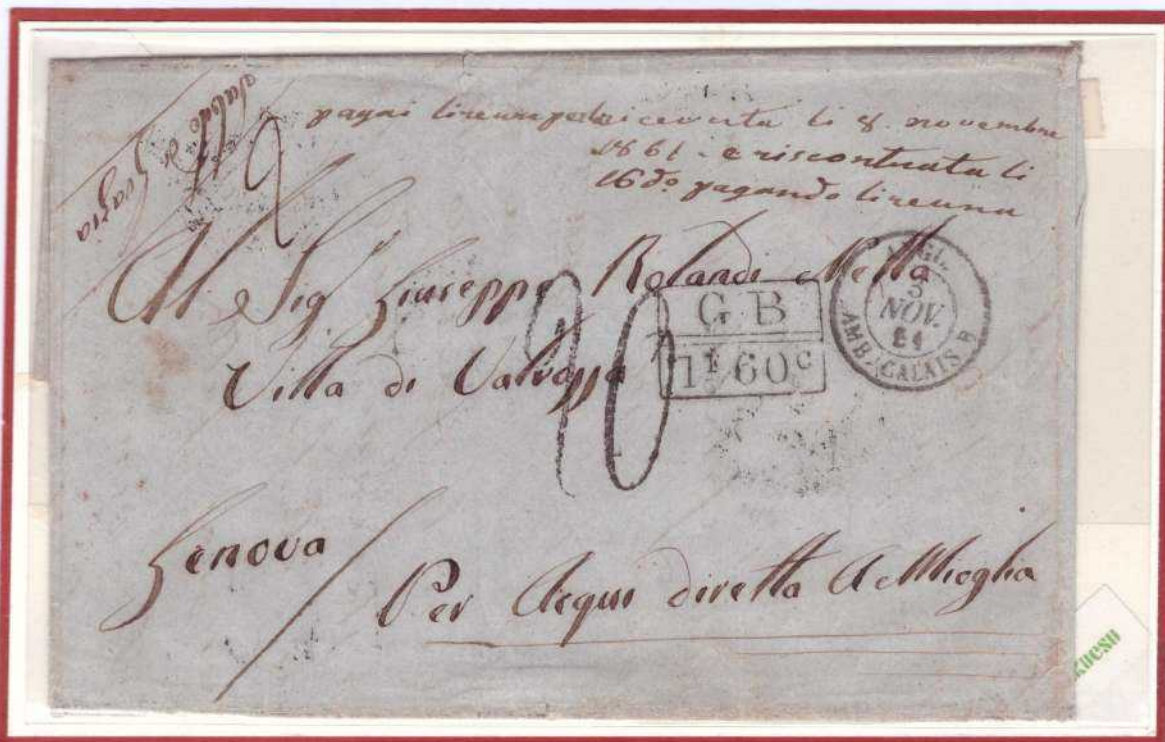 pagai lire una per la ricevuta li 8 novembre
1861 - e riscontrata li
16 do pagando lire una
Al Sig Giuseppe Rolandi Mella
Villa di
G B
1F 60c
20
ANGL.
3
NOV.
61
AMB. CALAIS B
Genova
Per Acqui diretta A Mioglia